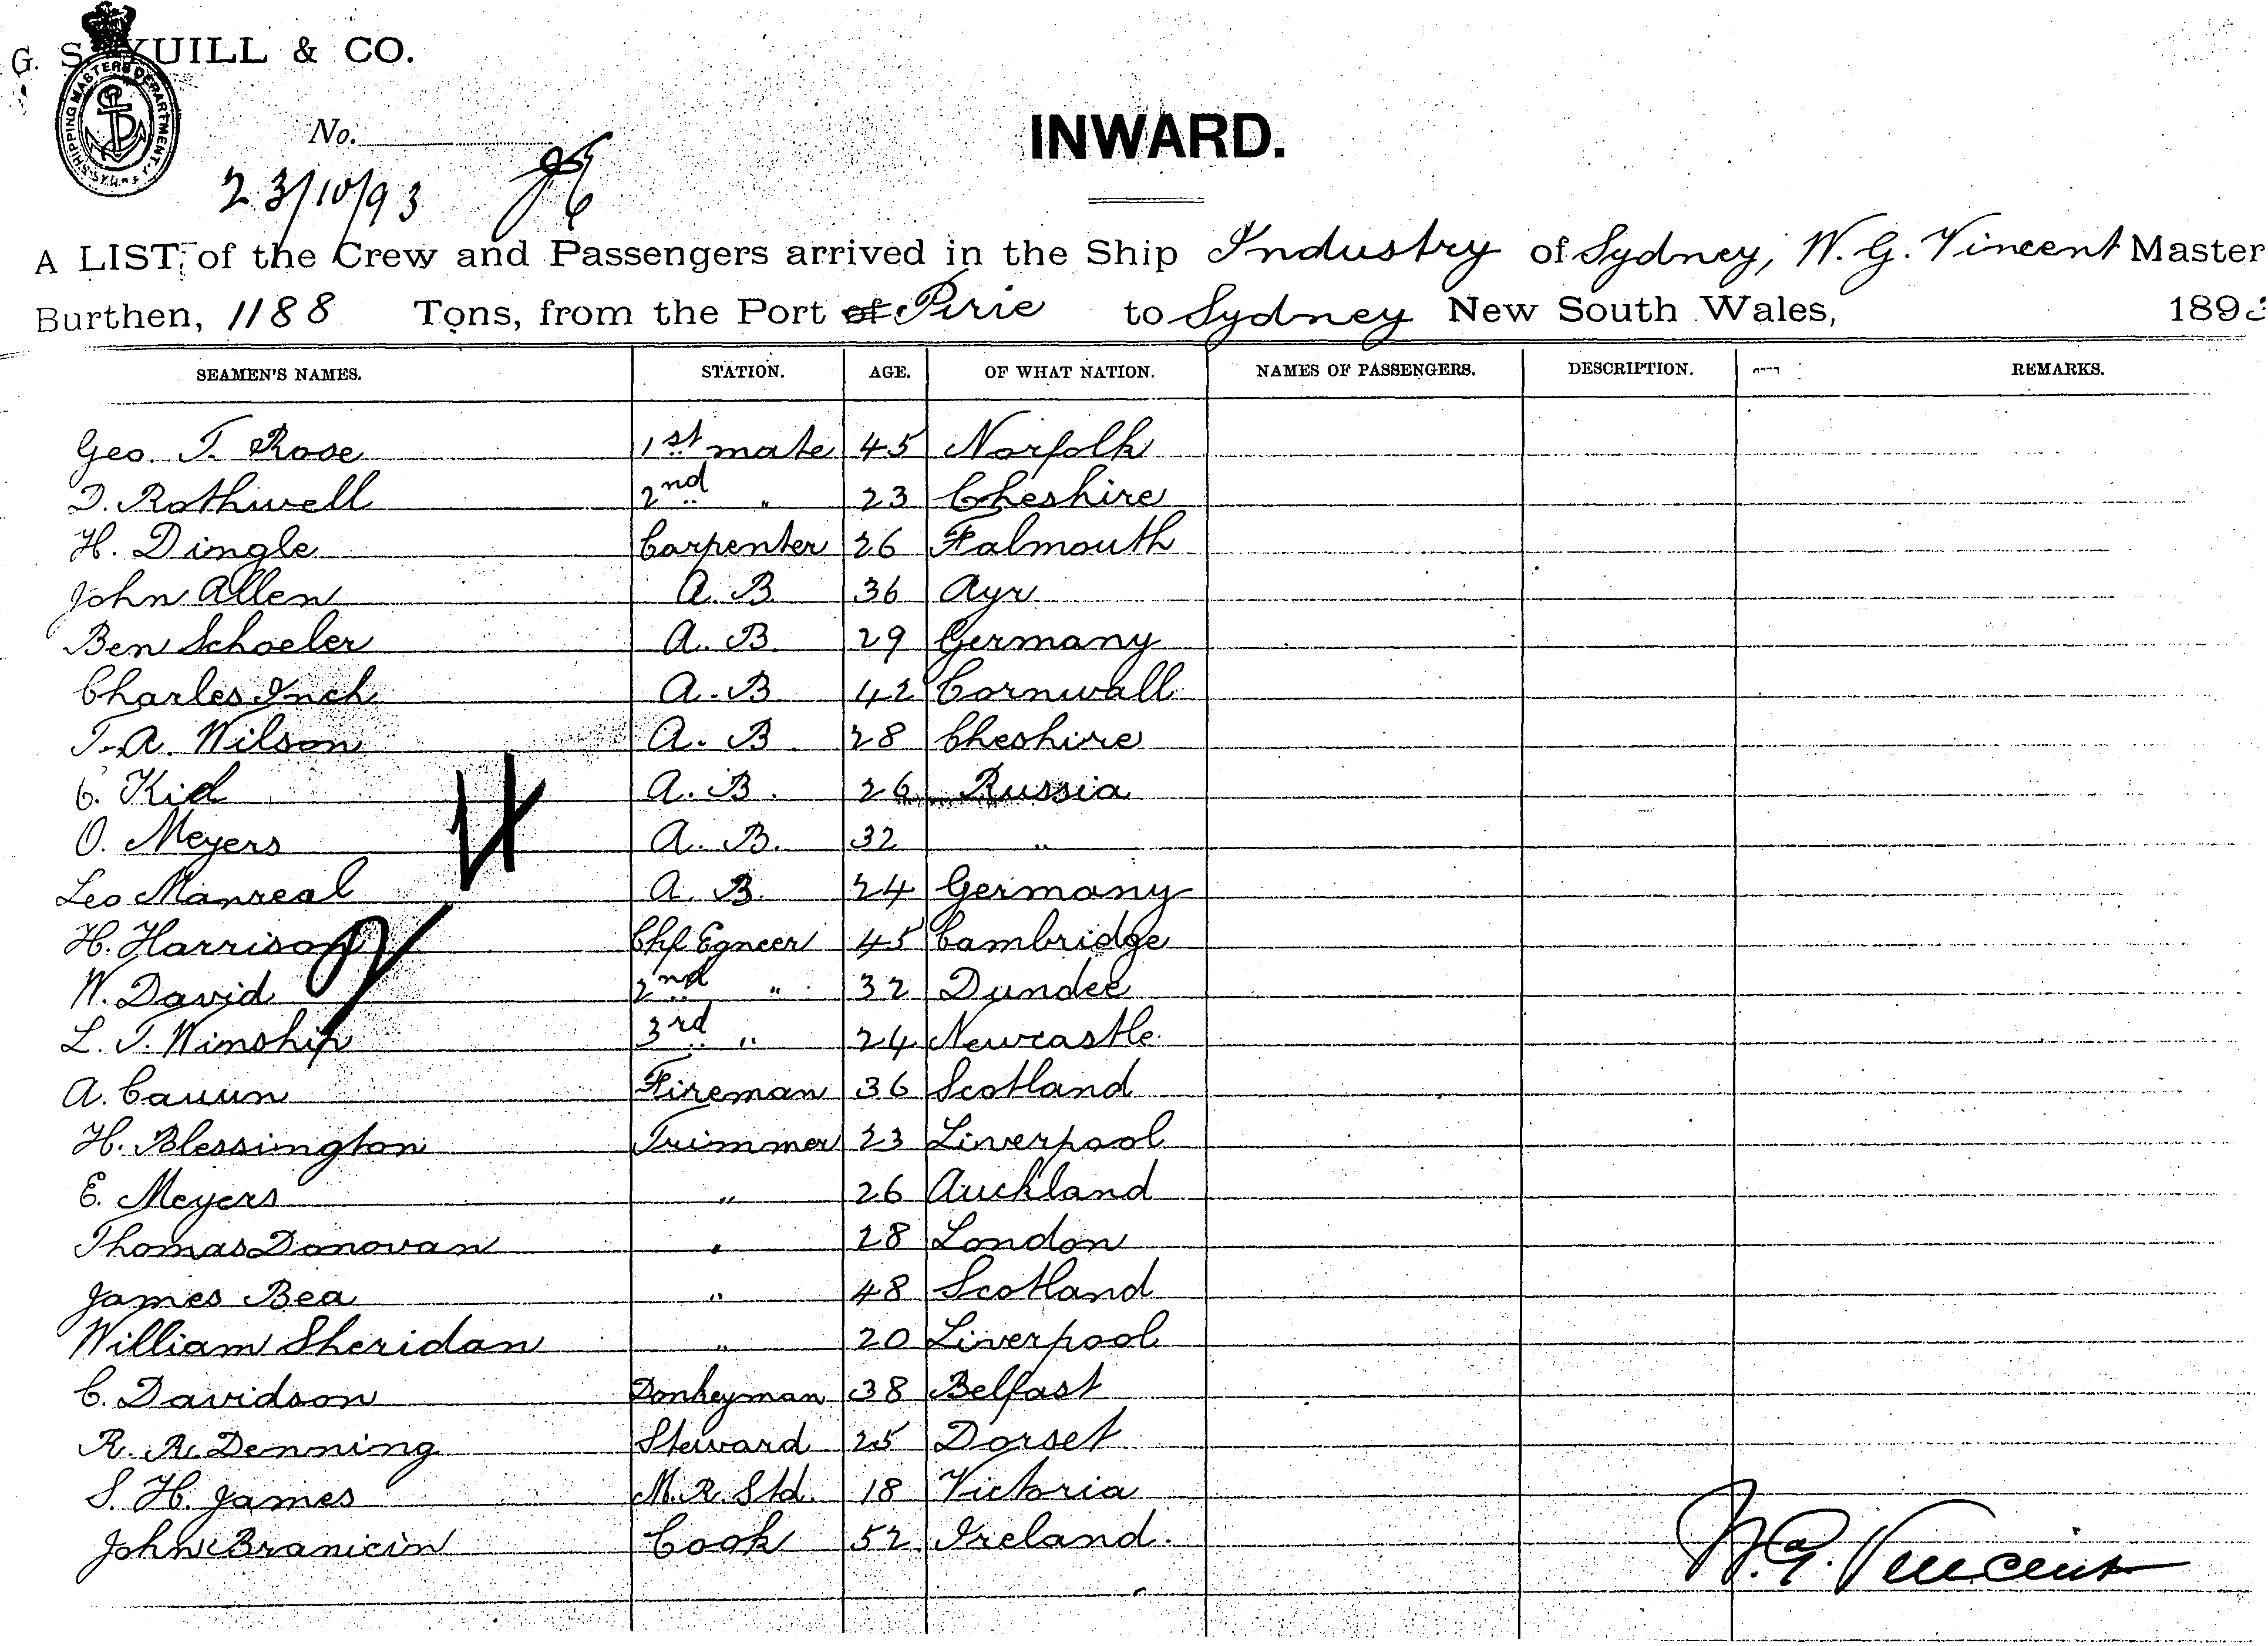 G. S. YUILL & CO.
SHIPPING MASTERS DEPARTMENT
No.
23/10/93
INWARD.
A LIST, of the Crew and Passengers arrived in the Ship Industry of Sydney, W. G. Vincent Master
Burthen, 1188 Tons, from the Port of Pirie to Sydney New South Wales, 1893
SEAMEN'S NAMES. STATION. AGE. OF WHAT NATION. NAMES OF PASSENGERS. DESCRIPTION. REMARKS.
Geo. T. Rose 1st mate 45 Norfolk
D. Rothwell 2nd " 23 Cheshire
H. Dingle Carpenter 26 Falmouth
John Allen A. B. 36 Ayr
Ben Schoeler A. B 29 Germany
Charles Inch A. B 42 Cornwall
T. A. Wilson A. B. 28 Cheshire
C. Kid A. B. 26 Russia
O. Meyers A. B. 32 "
Leo Manreal A. B. 24 Germany
H. Harrison Chf Egneer 45 Cambridge
W. David 2nd " 32 Dundee
L. T. Winship 3rd " 24 Newcastle
A. Fireman 36 Scotland
H. Blessington Trimmer 23 Liverpool
E. Meyers " 26 Auckland
Thomas Donovan " 28 London
James Bea " 48 Scotland
William Sheridan " 20 Liverpool
C. Davidson Donkeyman 38 Belfast
R. R. Denning Steward 25 Dorset
S. H. James M. R. Std. 18 Victoria
John Branicin Cook 52 Ireland.
W. G. Vincent